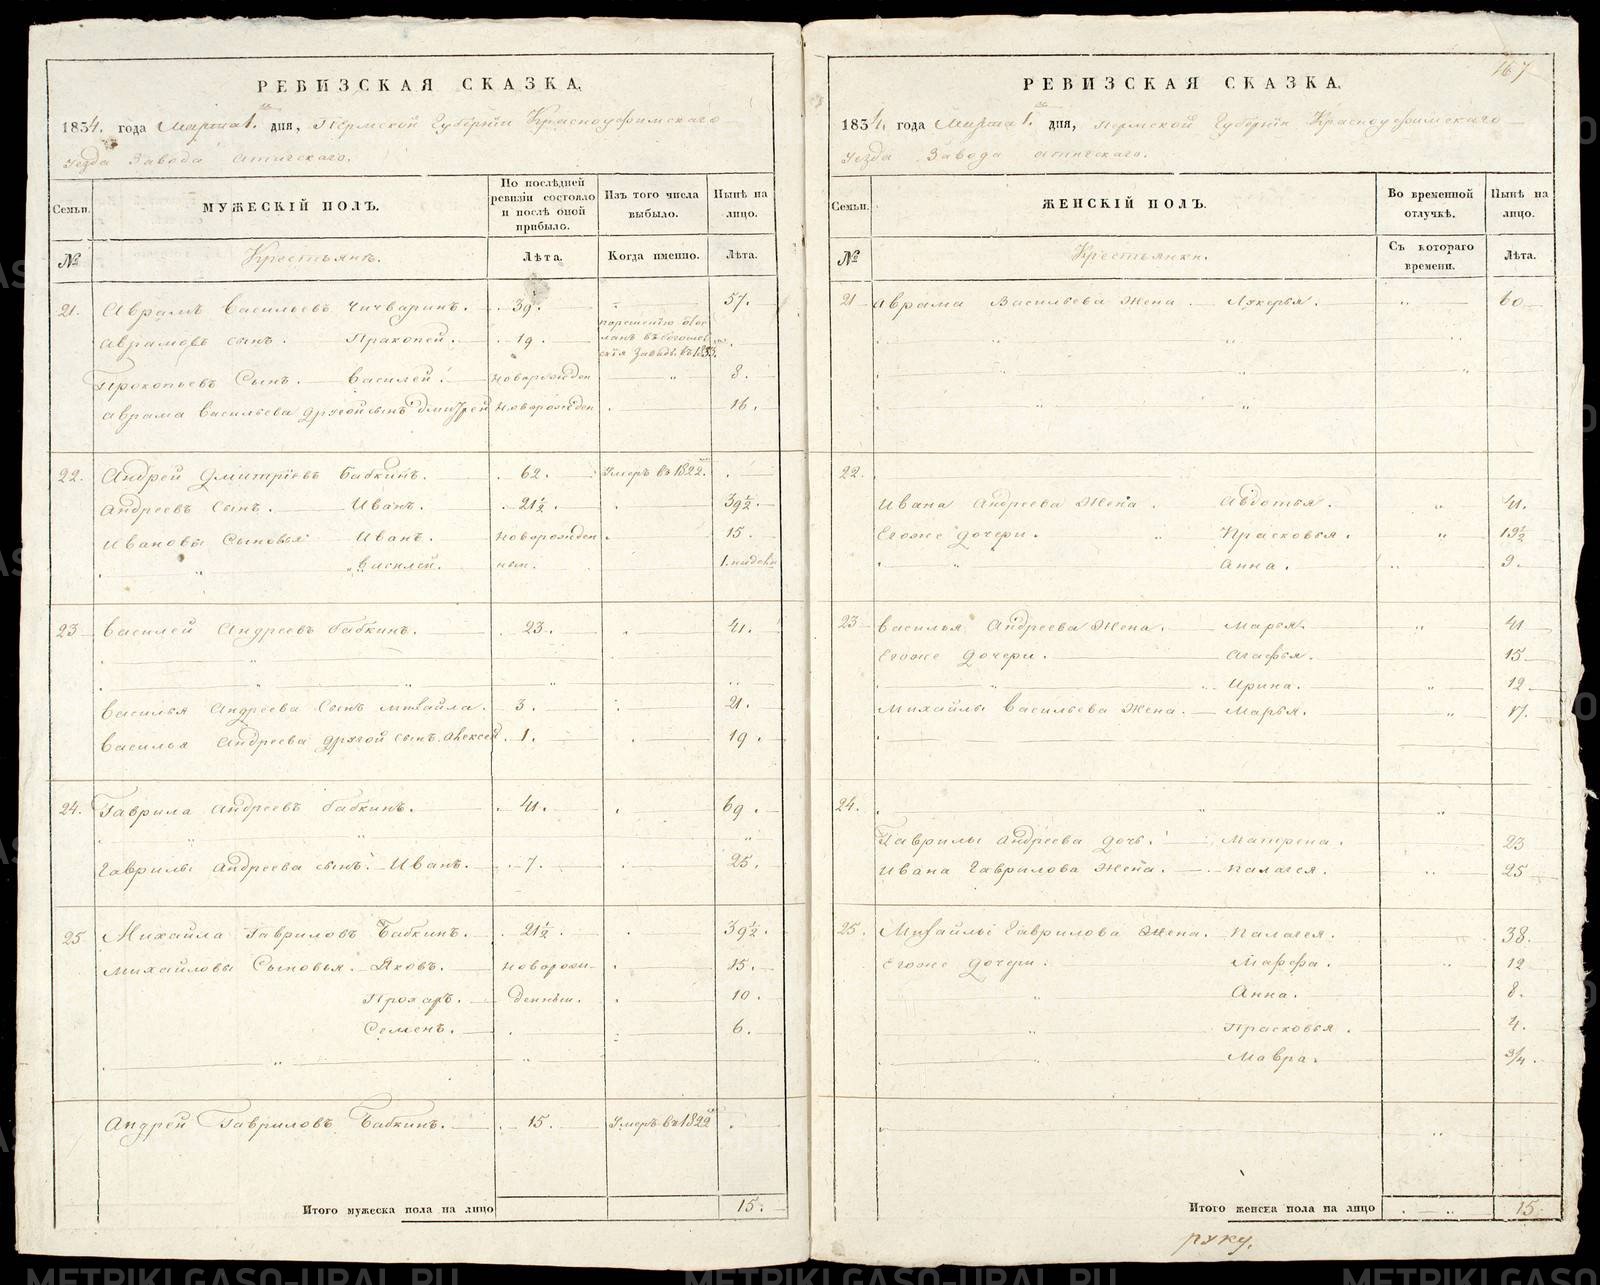 РЕВИЗСКАЯ СКАЗКА.
1834. года Марта 1. дня, Пермской Губерніи Красноуфимскаго
Уезда Завода Атигскаго.
Семьи.
МУЖЕСКІЙ ПОЛЪ.
По послѣдней ревизіи состояло и послѣ оной прибыло.
Изъ того числа выбыло.
Нынѣ на лицо.
№
Крестьянъ.
Лѣта.
Когда именно.
Лѣта.
21. Аврамъ Васильевъ Чичваринъ. 39. 57.
Аврамовъ сынъ. Пракопей. 19.
Прокопьевъ Сынъ. Василей. новорожден 8.
Аврама Васильева другой сынъ Дмитрей новорожден 16.
22. Андрей Дмитріевъ Бабкинъ. 62. Умеръ въ 1822.
Андреевъ Сынъ. Иванъ. 21½. 39½.
Ивановы Сыновья Иванъ. новорожден 15.
" Василей. ныи. 1. недель
23 Василей Андреевъ Бабкинъ. 23. 41.
Василья Андреева Сынъ Михайла. 3. 21.
Василья Андреева другой сынъ. Алексей. 1. 19.
24. Гаврила Андреевъ Бабкинъ. 41. 69.
Гаврилы Андреева сынъ. Иванъ. 7. 25.
25. Михайла Гавриловъ Бабкинъ. 21½. 39½.
Михайловы Сыновья. Яковъ. новорож- 15.
Прохаръ. денныи. 10.
Семенъ. 6.
Андрей Гавриловъ Бабкинъ. 15. Умеръ въ 1822
Итого мужеска пола на лицо 15.
167
РЕВИЗСКАЯ СКАЗКА.
1834. года Марта 1. дня, Пермской Губерніи Красноуфимскаго
Уезда Завода Атигскаго.
Семьи.
ЖЕНСКІЙ ПОЛЪ.
Во временной отлучкѣ.
Нынѣ на лицо.
№
Крестьянки.
Съ котораго времени.
Лѣта.
21 Аврама Васильева Жена. Лукерья. 60
22.
Ивана Андреева Жена. Авдотья. 41.
Егоже дочери. Прасковья. 19½
" Анна. 9.
23 Василья Андреева Жена. Марья. 41
Егоже дочери. Агафья. 15
" Ирина. 12
Михайлы Васильева Жена. Марья. 17.
24.
Гаврилы Андреева дочь. Матрена. 23
Ивана Гаврилова Жена. Палагея. 25
25. Михайлы Гаврилова Жена. Палагея. 38.
Егоже дочери. Марфа. 12
" Анна. 8.
" Прасковья. 4.
" Мавра. ¾.
Итого женска пола на лицо 15.
руку.
METRIKI.GASO-URAL.RU
METRIKI.GASO-URAL.RU